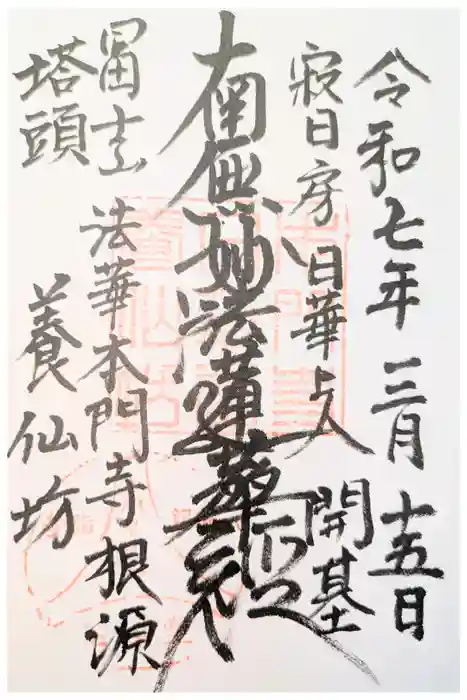 令和七年三月十五日
寂日房日華上人開基
南無妙法蓮華経
冨士山法華本門寺根源
塔頭 養仙坊